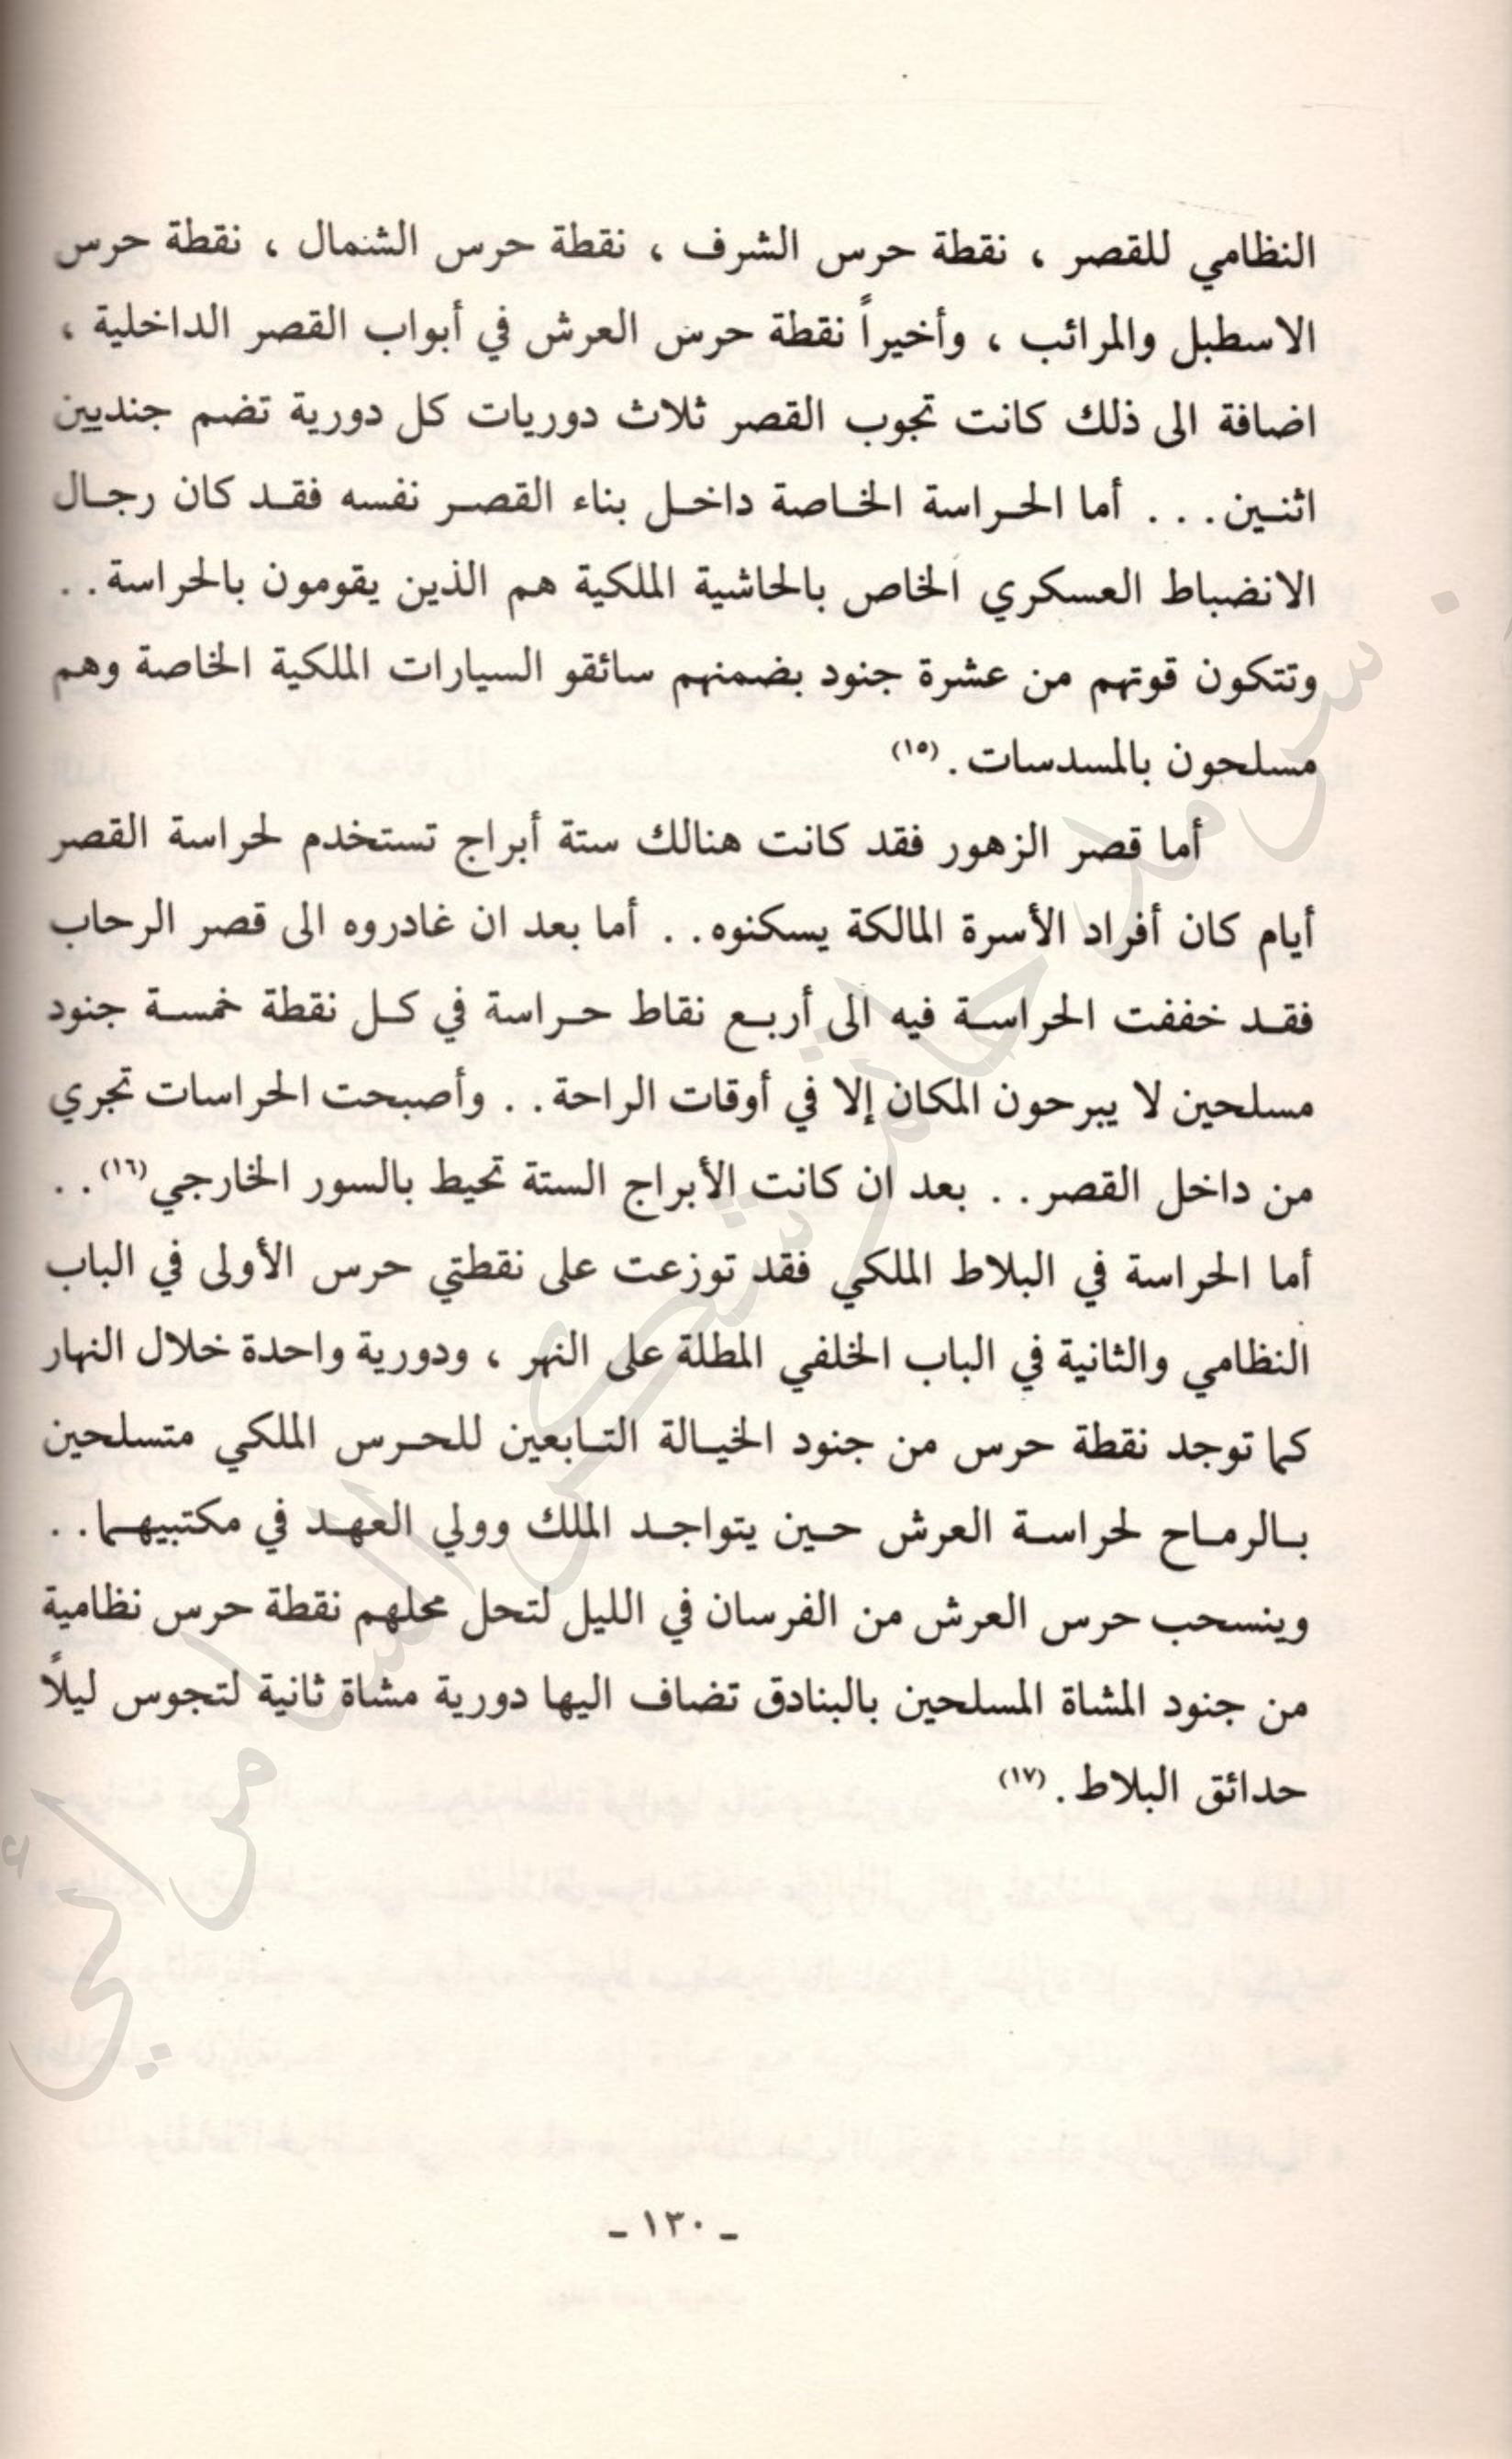 النظامي للقصر ، نقطة حرس الشرف ، نقطة حرس الشمال ، نقطة حرس
الاسطبل والمرائب ، وأخيراً نقطة حرس العرش في أبواب القصر الداخلية ،
اضافة الى ذلك كانت تجوب القصر ثلاث دوريات كل دورية تضم جنديين
اثنين . . . أما الحراسة الخاصة داخل بناء القصر نفسه فقد كان رجال
الانضباط العسكري الخاص بالحاشية الملكية هم الذين يقومون بالحراسة . .
وتتكون قوتهم من عشرة جنود بضمنهم سائقو السيارات الملكية الخاصة وهم
مسلحون بالمسدسات . (١٥)
أما قصر الزهور فقد كانت هنالك ستة أبراج تستخدم لحراسة القصر
أيام كان أفراد الأسرة المالكة يسكنوه . . أما بعد ان غادروه الى قصر الرحاب
فقد خففت الحراسة فيه الى أربع نقاط حراسة في كل نقطة خمسة جنود
مسلحين لا يبرحون المكان إلا في أوقات الراحة . . وأصبحت الحراسات تجري
من داخل القصر . . بعد ان كانت الأبراج الستة تحيط بالسور الخارجي (١٦) . .
أما الحراسة في البلاط الملكي فقد توزعت على نقطتي حرس الأولى في الباب
النظامي والثانية في الباب الخلفي المطلة على النهر ، ودورية واحدة خلال النهار
كما توجد نقطة حرس من جنود الخيالة التابعين للحرس الملكي متسلحين
بالرماح لحراسة العرش حين يتواجد الملك وولي العهد في مكتبيهما . .
وينسحب حرس العرش من الفرسان في الليل لتحل محلهم نقطة حرس نظامية
من جنود المشاة المسلحين بالبنادق تضاف اليها دورية مشاة ثانية لتجوس ليلًا
حدائق البلاط . (١٧)
ـ ١٣٠ ـ